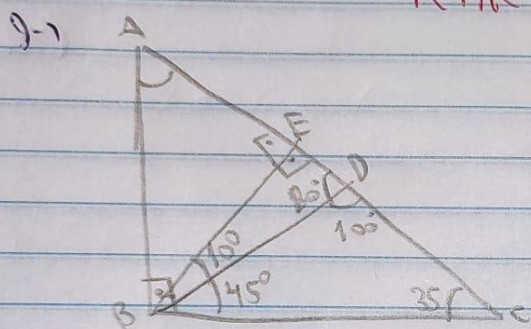 9-1
A
E
D
80°
100°
10°
45°
35
B
C